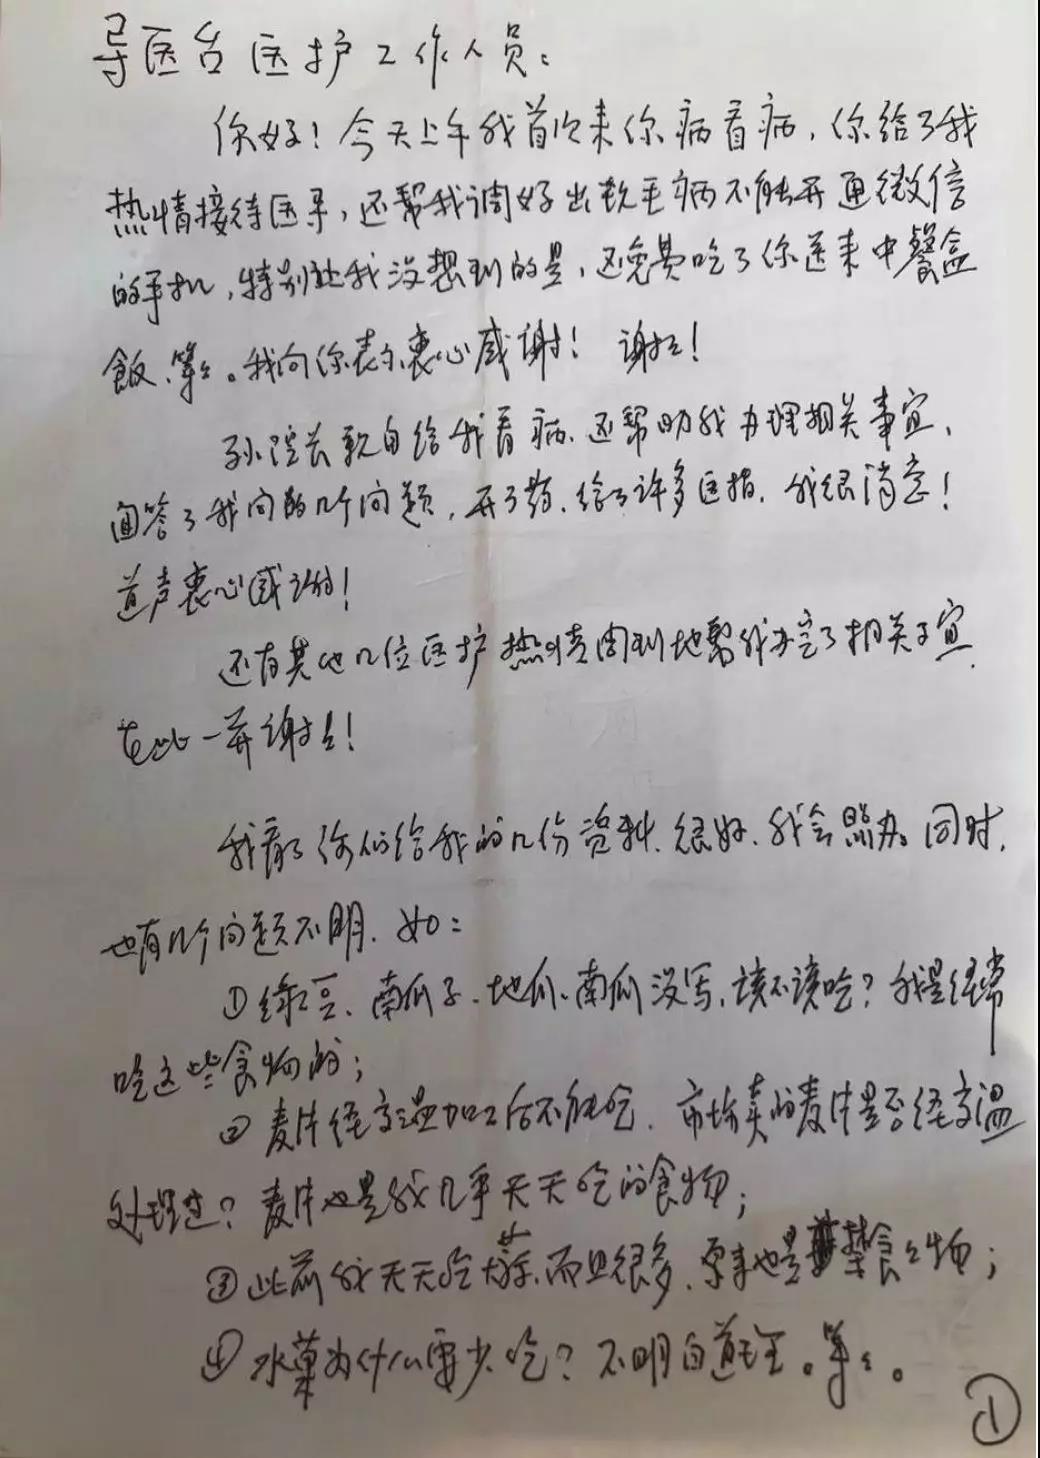 导医台医护工作人员：
你好！今天上午我首次来你病看病，你给了我
热情接待医导，还帮我调好出软毛病不能开通微信
的手机，特别让我没想到的是，还免费吃了你送来中餐盒
飯、等等。我向你表示衷心感谢！谢谢！
孙院长亲自给我看病、还帮助我办理相关事宜、
回答了我问的几个问题，开了药、给了许多医指，我很满意！
道声衷心感谢！
还有其他几位医护热情周到地帮我办完了相关事宜，
在此一并谢谢！
我看了你们给我的几份资料、很好、我会照办。同时，
也有几个问题不明、如：
①绿豆、南瓜子、地瓜、南瓜没写，该不该吃？我是经常
吃这些食物的；
②麦片经高温加工后不能吃、市场卖的麦片是否经高温
处理过？麦片也是我几乎天天吃的食物；
③此前我天天吃大蒜、而且很多、原来也是禁食之物；
④水菓为什么要少吃？不明白道理。等等。
①